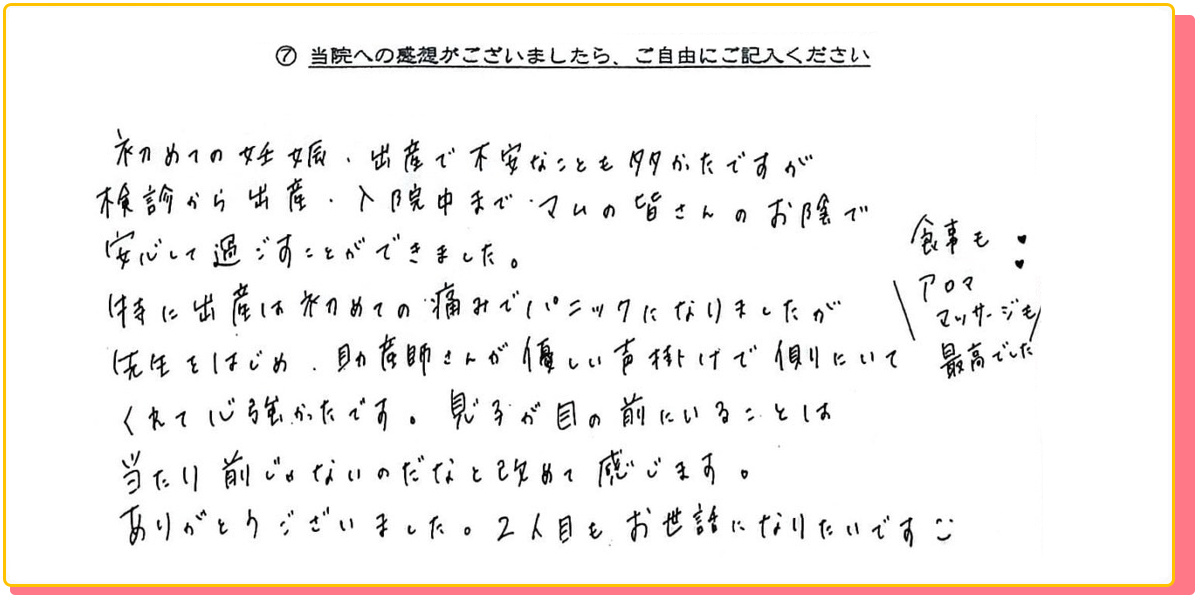 ⑦ 当院への感想がございましたら、ご自由にご記入ください
初めての妊娠・出産で不安なことも多かたですが
検診から出産・入院中まで・マムの皆さんのお陰で
安心して過ごすことができました。
特に出産は初めての痛みでパニックになりましたが
先生をはじめ、助産師さんが優しい声掛けで側りにいて
くれて心強かったです。息子が目の前にいることは
当たり前じゃないのだなと改めて感じます。
ありがとうございました。2人目もお世話になりたいです
食事も
アロマ
マッサージも
最高でした